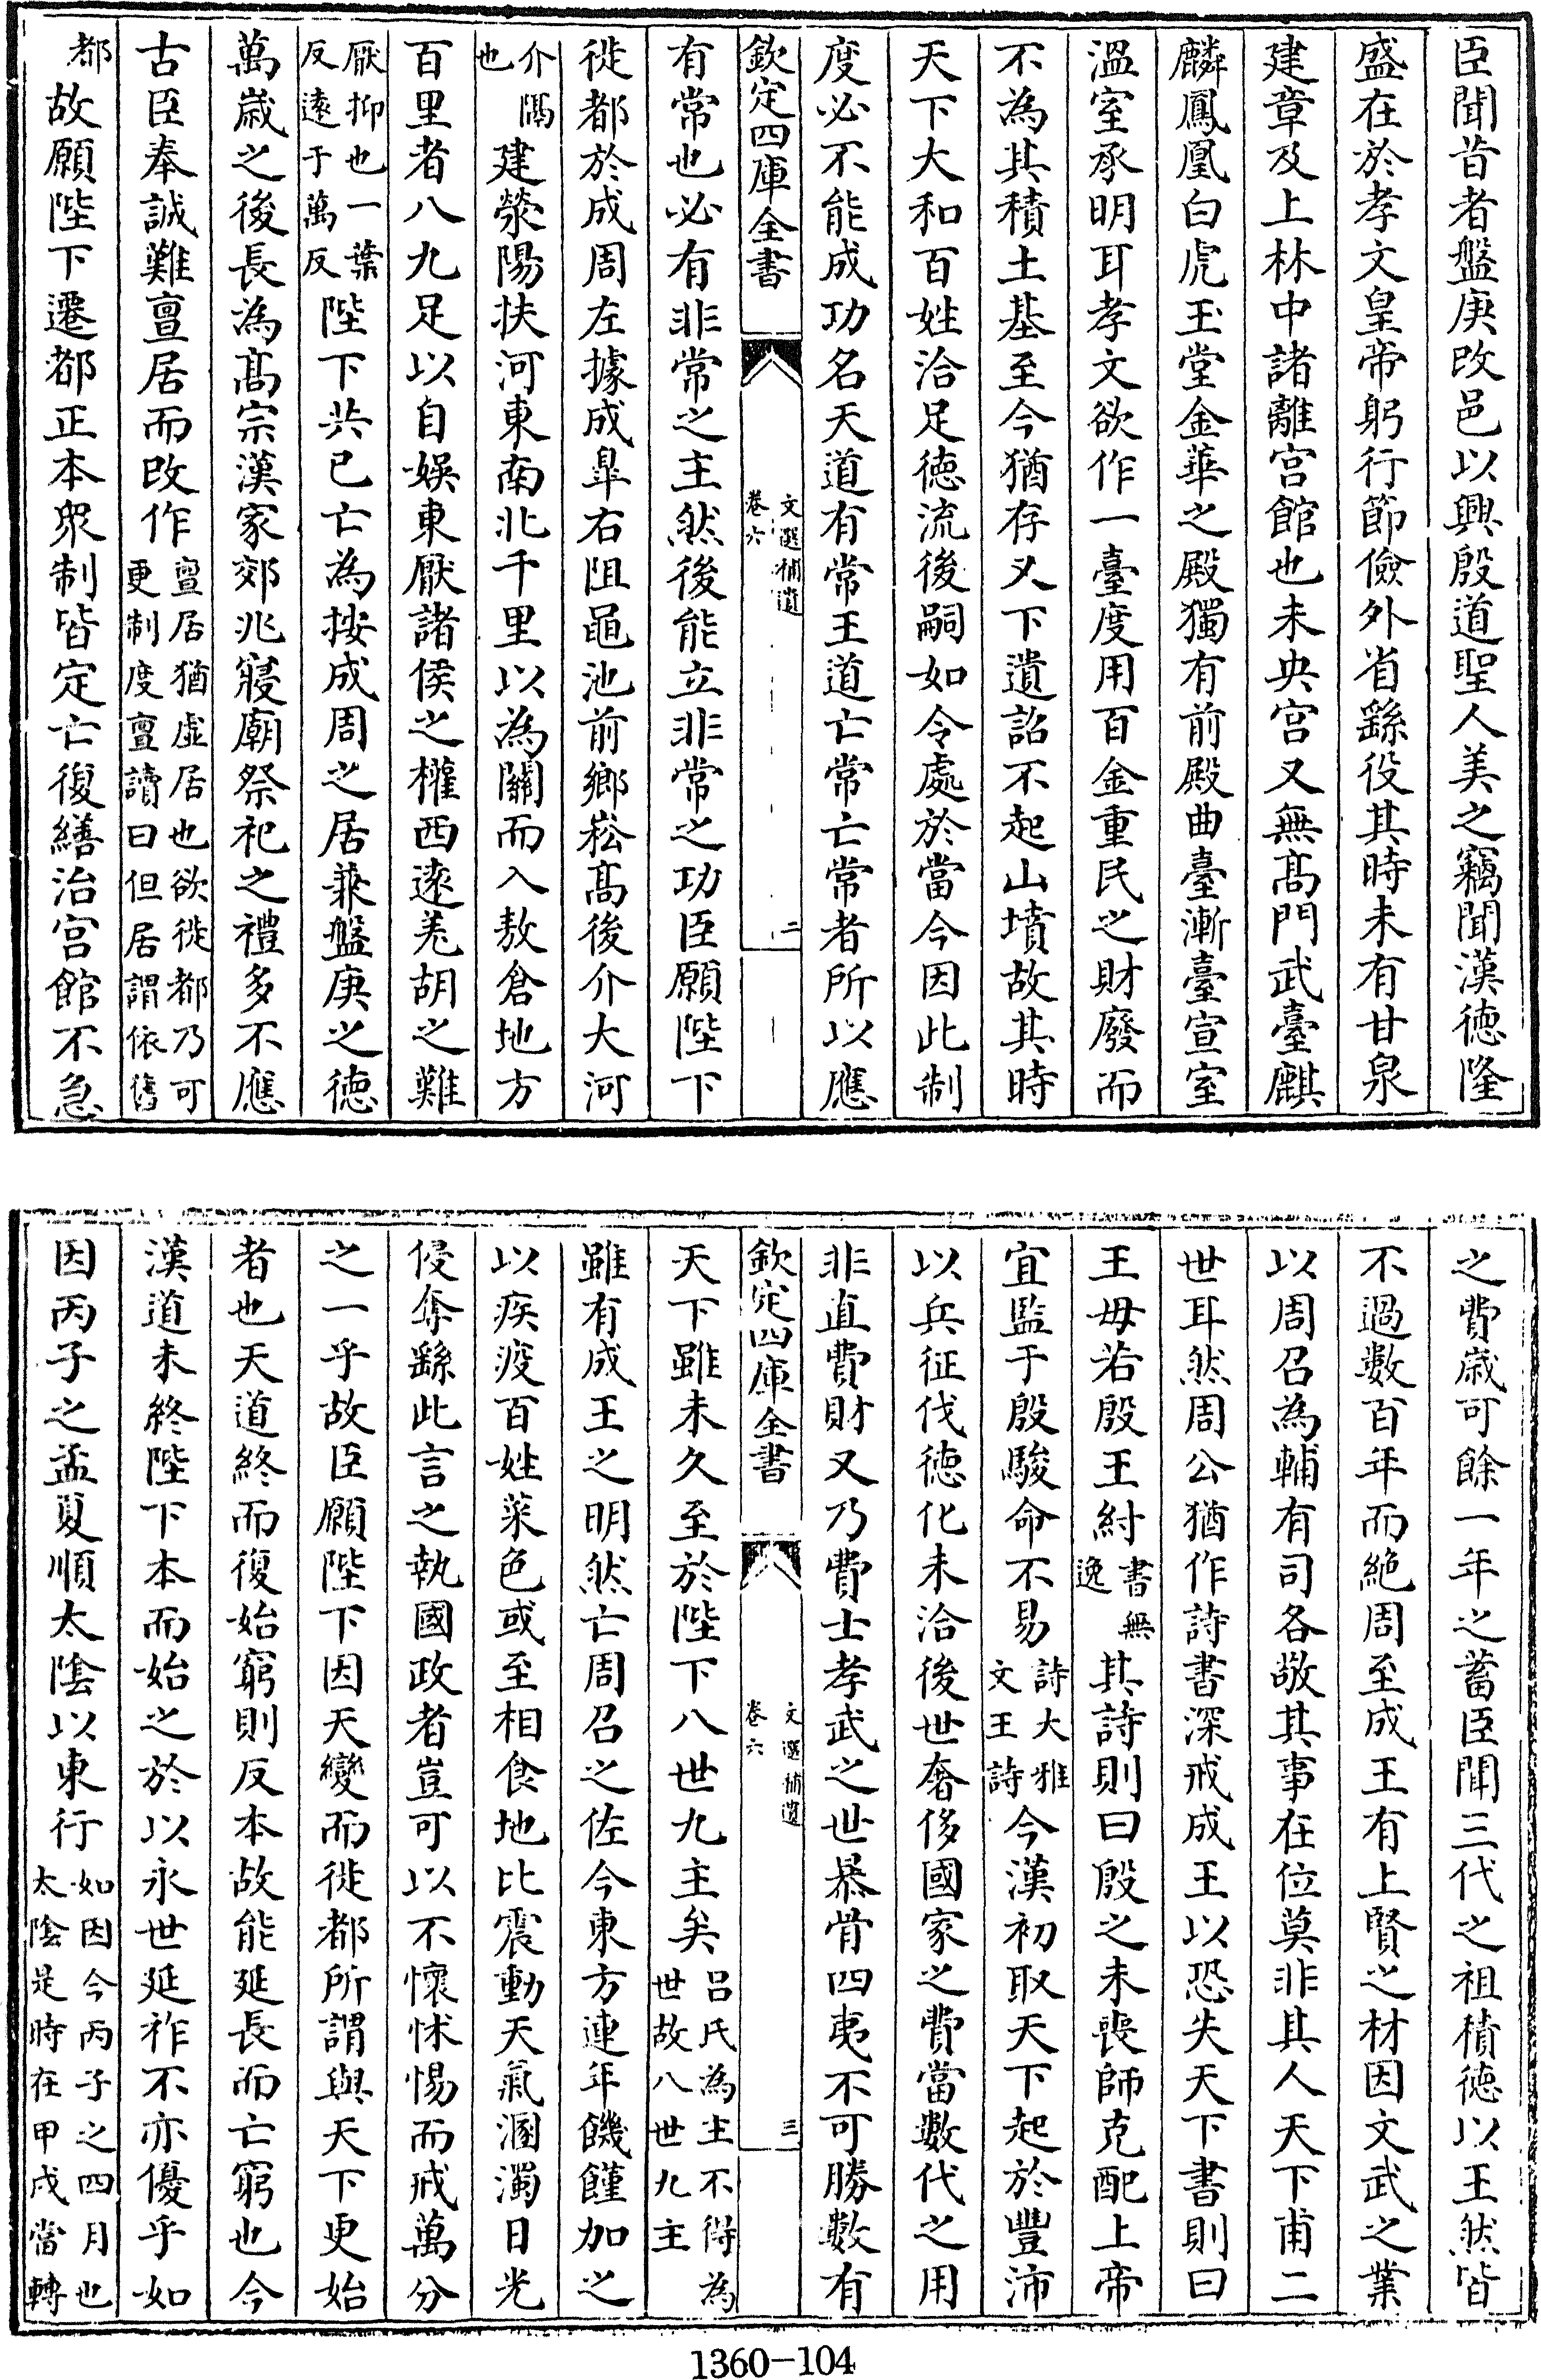 臣聞昔者盤庚改邑以興殷道聖人美之竊聞漢徳隆
盛在於孝文皇帝躬行節儉外省繇役其時未有甘泉
建章及上林中諸離宫館也未央宫又無髙門武臺麒
麟鳳凰白虎玉堂金華之殿獨有前殿曲臺漸臺宣室
溫室承明耳孝文欲作一臺度用百金重民之財廢而
不為其積土基至今猶存又下遺詔不起山墳故其時
天下大和百姓洽足徳流後嗣如令處於當今因此制
度必不能成功名天道有常王道亡常亡常者所以應
欽定四庫全書
文選補遺
卷六
二
有常也必有非常之主然後能立非常之功臣願陛下
徙都於成周左據成臯右阻黽池前鄉崧髙後介大河
介隔
也
建滎陽扶河東南北千里以為關而入敖倉地方
百里者八九足以自娱東厭諸侯之權西逺羌胡之難
厭抑也一葉
反逺于萬反
陛下共已亡為按成周之居兼盤庚之徳
萬歳之後長為髙宗漢家郊兆寢廟祭祀之禮多不應
古臣奉誠難亶居而改作
亶居猶虚居也欲徙都乃可
更制度亶讀曰但居謂依舊
都
故願陛下遷都正本衆制皆定亡復繕治宫館不急
之費歳可餘一年之蓄臣聞三代之祖積徳以王然皆
不過數百年而絶周至成王有上賢之材因文武之業
以周召為輔有司各敬其事在位莫非其人天下甫二
世耳然周公猶作詩書深戒成王以恐失天下書則曰
王毋若殷王紂
書無
逸
其詩則曰殷之未喪師克配上帝
宜監于殷駿命不易
詩大雅
文王詩
今漢初取天下起於豐沛
以兵征伐徳化未洽後世奢侈國家之費當數代之用
非直費財又乃費士孝武之世暴骨四夷不可勝數有
欽定四庫全書
文選補遺
卷六
三
天下雖未久至於陛下八世九主矣
呂氏為主不得為
世故八世九主
雖有成王之明然亡周召之佐今東方連年饑饉加之
以疾疫百姓菜色或至相食地比震動天氣溷濁日光
侵奪繇此言之執國政者豈可以不懷怵惕而戒萬分
之一乎故臣願陛下因天變而徙都所謂與天下更始
者也天道終而復始窮則反本故能延長而亡窮也今
漢道未終陛下本而始之於以永世延祚不亦優乎如
因丙子之孟夏順太陰以東行
如因今丙子之四月也
太陰是時在甲戌當轉
1360-104